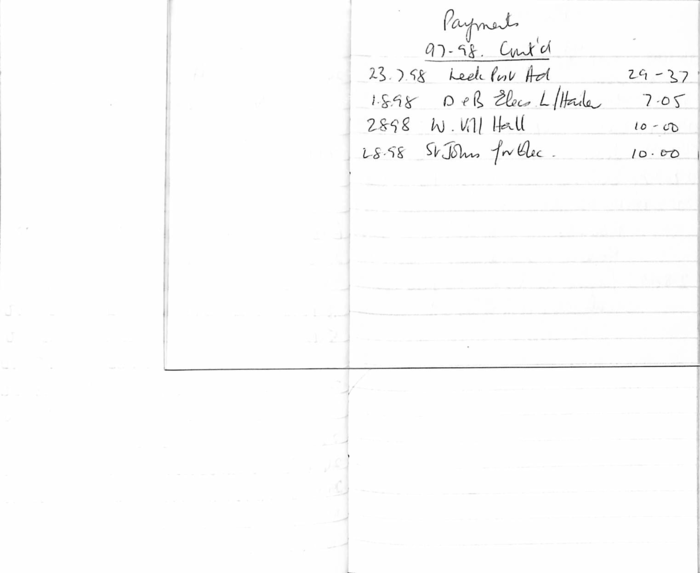 Payments
97-98. Cont'd
23.7.98 Leek Post Ad 29-37
1.8.98 D & B Elecs L/Hailer 7.05
2898 W. Vill Hall 10-00
28.98 St Johns for Elec. 10.00